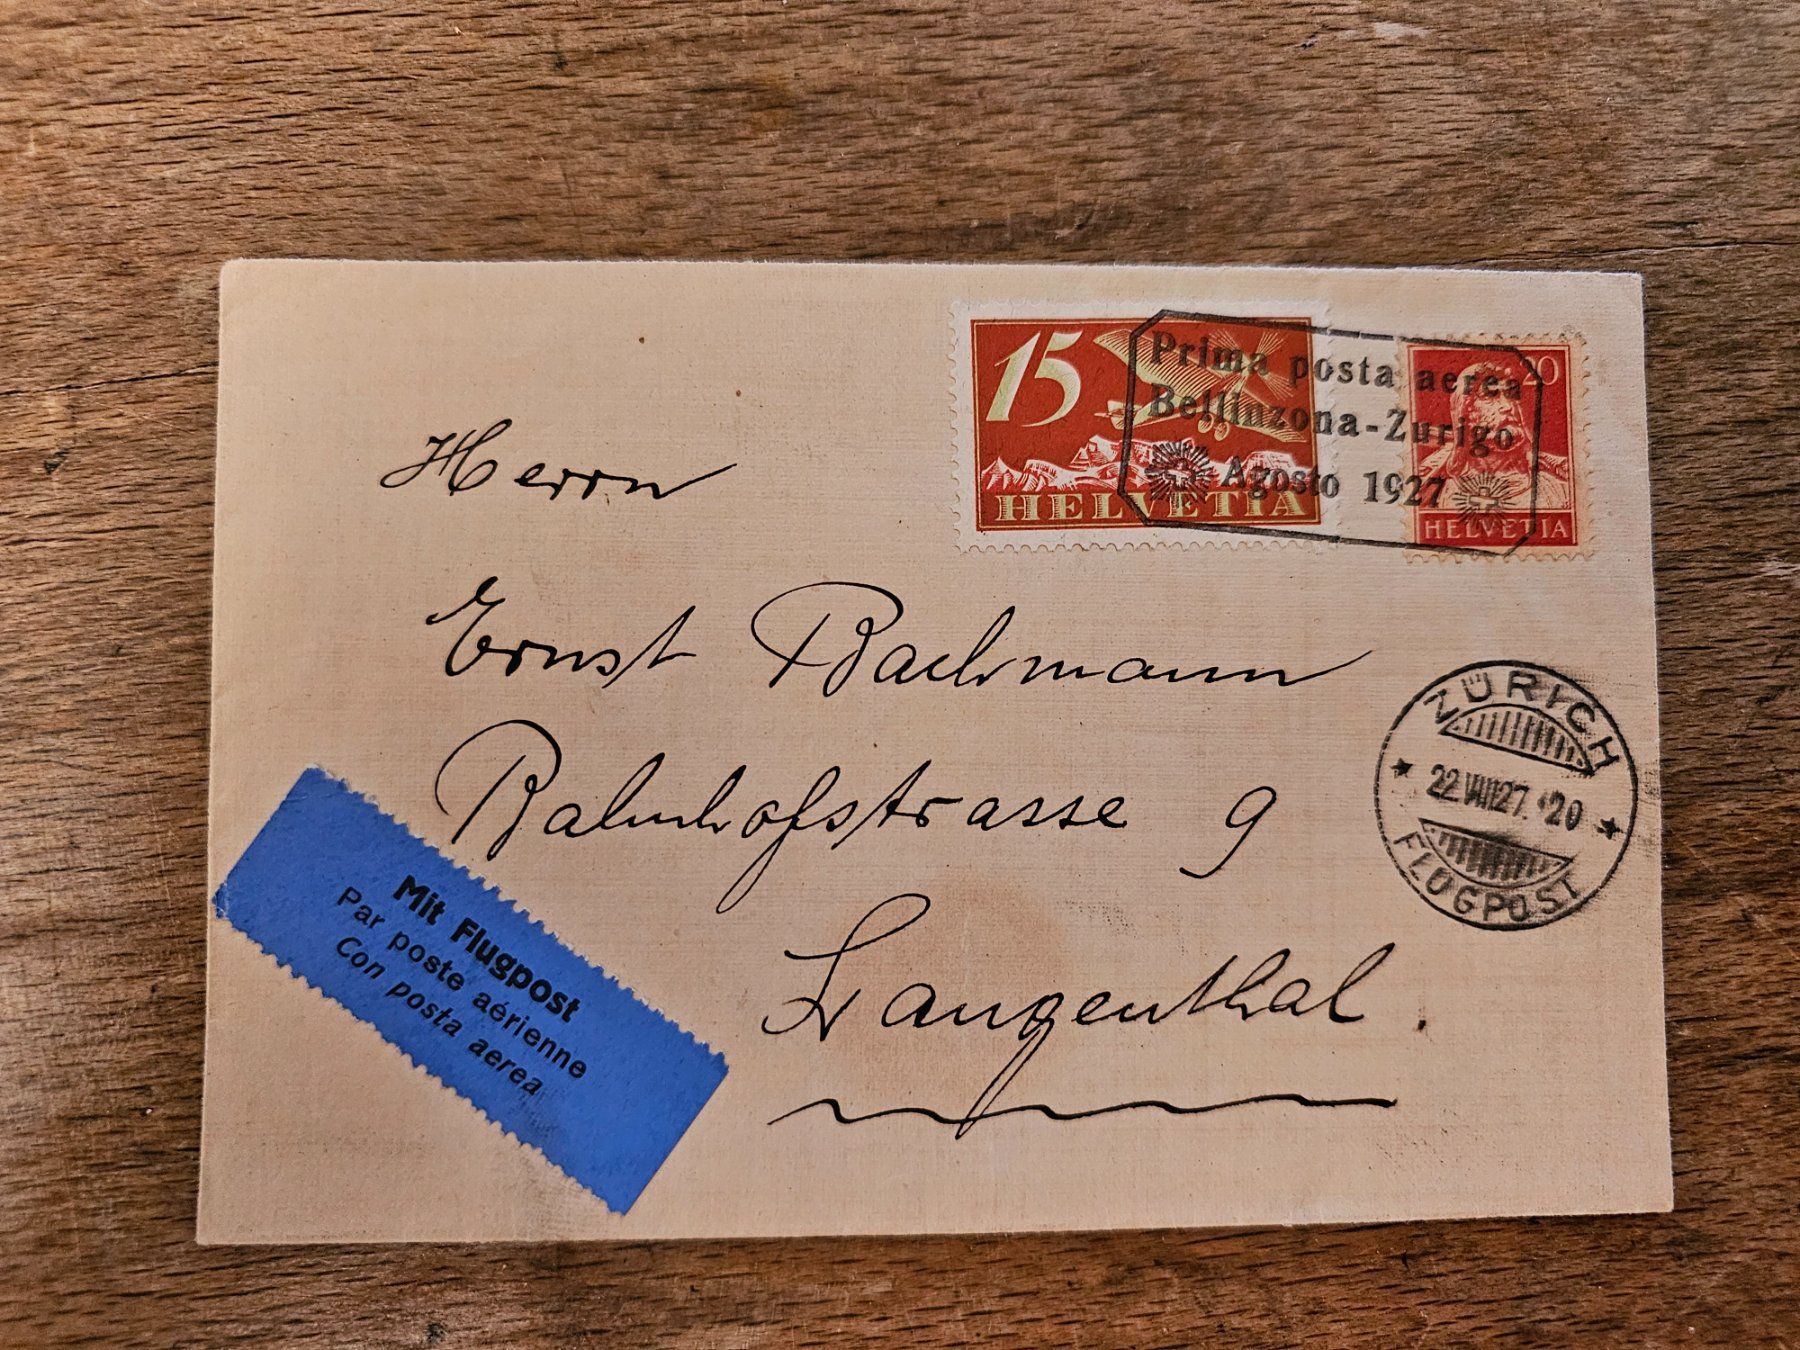 15
HELVETIA
20
HELVETIA
Prima posta aerea
Bellinzona-Zurigo
Agosto 1927
Herrn
Ernst Bachmann
Bahnhofstrasse 9
Langenthal.
ZÜRICH
22.VIII27.*20
FLUGPOST
Mit Flugpost
Par poste aérienne
Con posta aerea